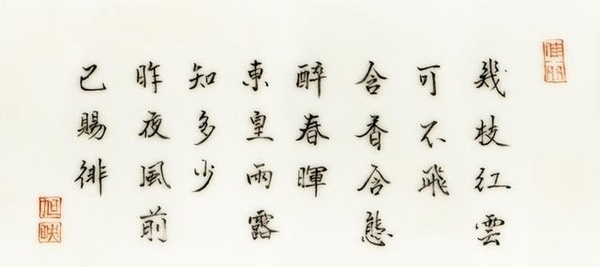 幾枝紅雲
可不飛
含香含態
醉春暉
東皇雨露
知多少
昨夜風前
已賜緋
旭映